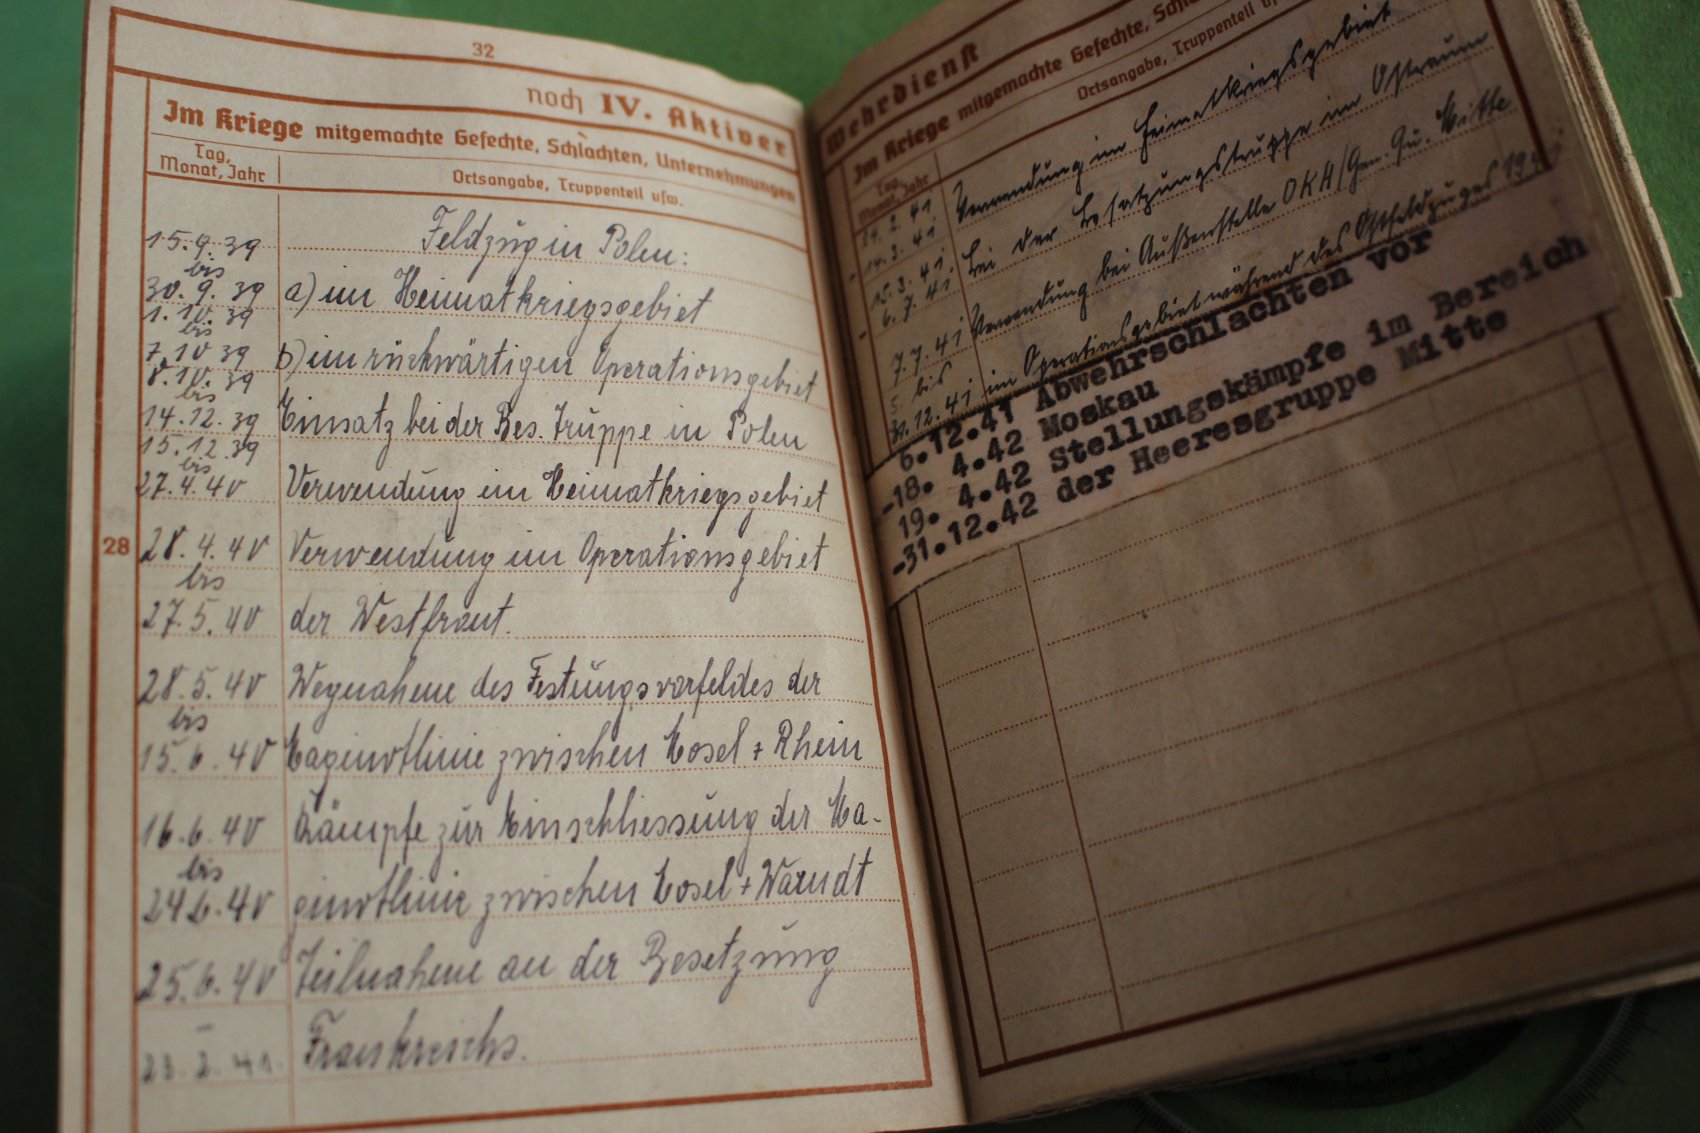 32
noch IV. Aktiver
Im Kriege mitgemachte Gefechte, Schlachten, Unternehmungen
Tag, Monat, Jahr
Ortsangabe, Truppenteil usw.
15.9.39 Feldzug in Polen:
bis
30.9.39 a) im Heimatkriegsgebiet
1.10.39
bis
7.10 39 b) im rückwärtigen Operationsgebiet
8.10.39
bis
14.12.39 Einsatz bei der Bes. Truppe in Polen
15.12.39
bis
27.4.40 Verwendung im Heimatkriegsgebiet
28
28.4.40 Verwendung im Operationsgebiet
bis
27.5.40 der Westfront.
28.5.40 Wegnahme des Festungsvorfeldes der
bis
15.6.40 Maginotlinie zwischen Mosel + Rhein
16.6.40 Kämpfe zur Einschliessung der Ma-
bis
24.6.40 ginotlinie zwischen Mosel + Warndt
25.6.40 Teilnahme an der Besetzung
–
23.2.41. Frankreichs.
Wehrdienst
Im Kriege mitgemachte Gefechte,
Tag, Monat, Jahr
Ortsangabe, Truppenteil
24.2.41 Verwendung im Heimatkriegsgebiet
- 14.3.41
15.3.41 bei der Besatzungstruppe im Ostraum
- 6.7.41.
7.7.41 Verwendung bei Außenstelle OKH/Gen.Qu. Mitte
bis
31.12.41 im Operationsgebiet während des Ostfeldzuges
6.12.41 Abwehrschlachten vor
-18. 4.42 Moskau
19. 4.42 Stellungskämpfe im Bereich
-31.12.42 der Heeresgruppe Mitte